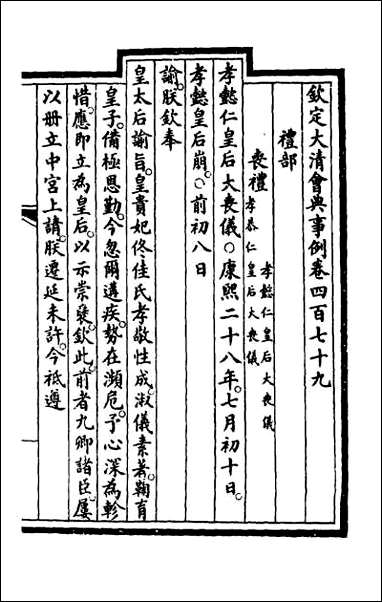 欽定大清會典事例卷四百七十九
禮部
喪禮
孝懿仁皇后大喪儀
孝恭仁皇后大喪儀
孝懿仁皇后大喪儀○康熙二十八年七月初十日。
孝懿皇后崩。○前初八日
諭。朕欽奉
皇太后諭旨。皇貴妃佟佳氏孝敬性成。淑儀素著。鞠育
皇子。備極恩勤。今忽爾遘疾。勢在瀕危。予心深為軫
惜。應即立為皇后。以示崇褒。欽此。前者九卿諸臣。屢
以册立中宮上請。朕遷延未許。今祗遵